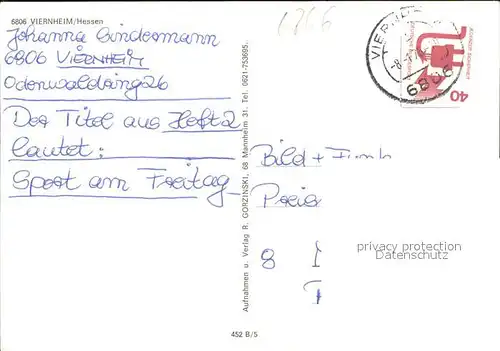 6806 VIERNHEIM/Hessen
Johanna Sindermann
6806 VIERNHEIM
Odenwaldring 26
Der Titel aus Heft 2
lautet:
Sport am Freitag
Aufnahmen u. Verlag R. GORZINSKI, 68 Mannheim 31. Tel. 0621-753695.
Bild + Funk
Preis
8
452 B/5
6806
40
privacy protection
Datenschutz